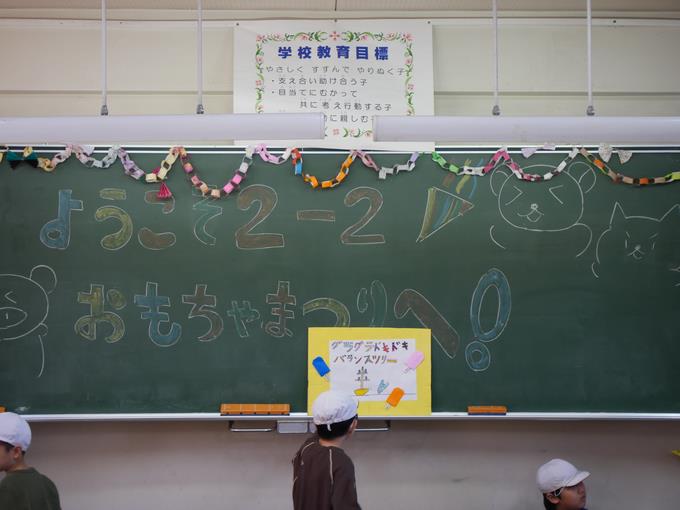 学校教育目標
やさしく すすんで やりぬく子
・支え合い助け合う子
・目当てにむかって
共に考え行動する子
に親しむ
ようこそ2-2
おもちゃまつりへ!
グラグラドキドキ
バランスツリー